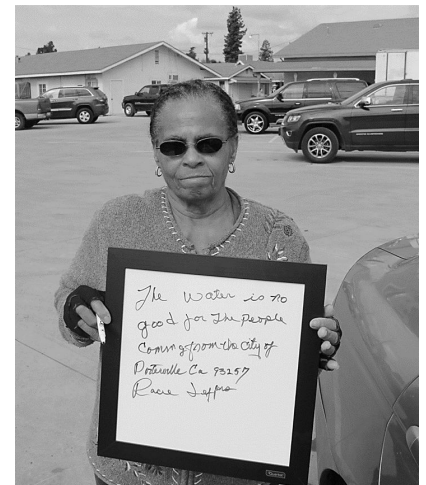 The water is no
good for The people
coming from the city of
Porterville Ca 93257